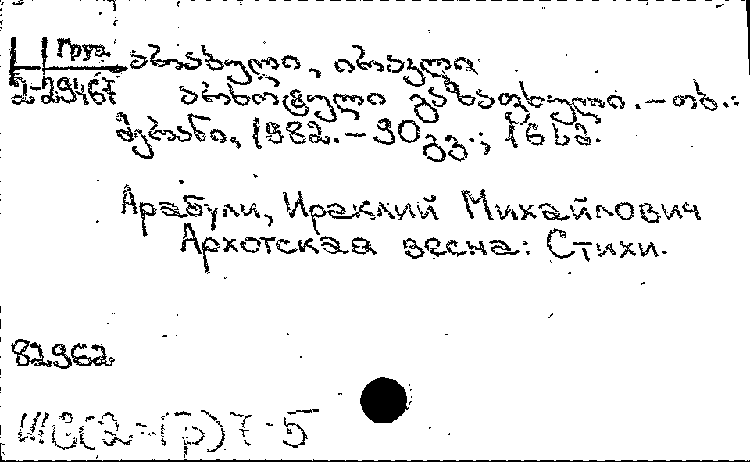 Груз
არაბული, ირაკლი
2-29467 არხოტული გაზაფხული.-თბ.:
მერანი, 1982.-90გვ.; 16 სმ.
Арабули, Ираклий Михайлович
Архотская весна: Стихи.
82962
Ш6(2=Гр)7-5